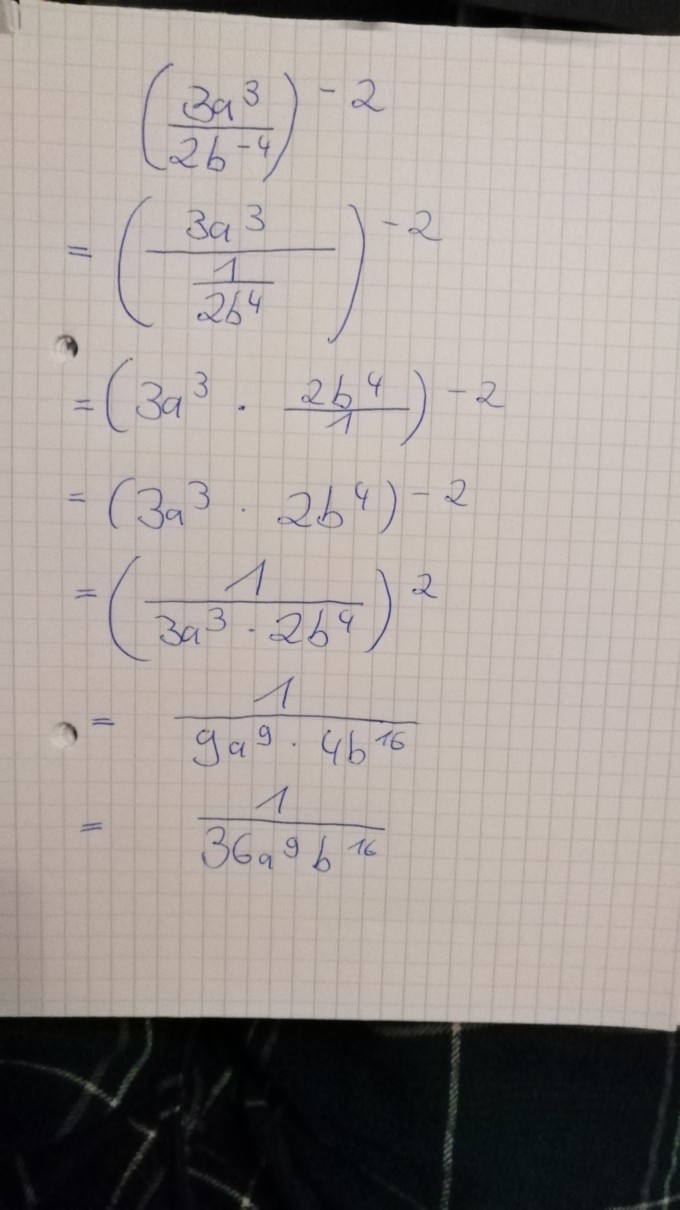 (3a³ / 2b⁻⁴)⁻²
= (3a³ / (1 / 2b⁴))⁻²
= (3a³ · 2b⁴ / 1)⁻²
= (3a³ · 2b⁴)⁻²
= (1 / 3a³ · 2b⁴)²
= 1 / 9a⁹ · 4b¹⁶
= 1 / 36a⁹b¹⁶